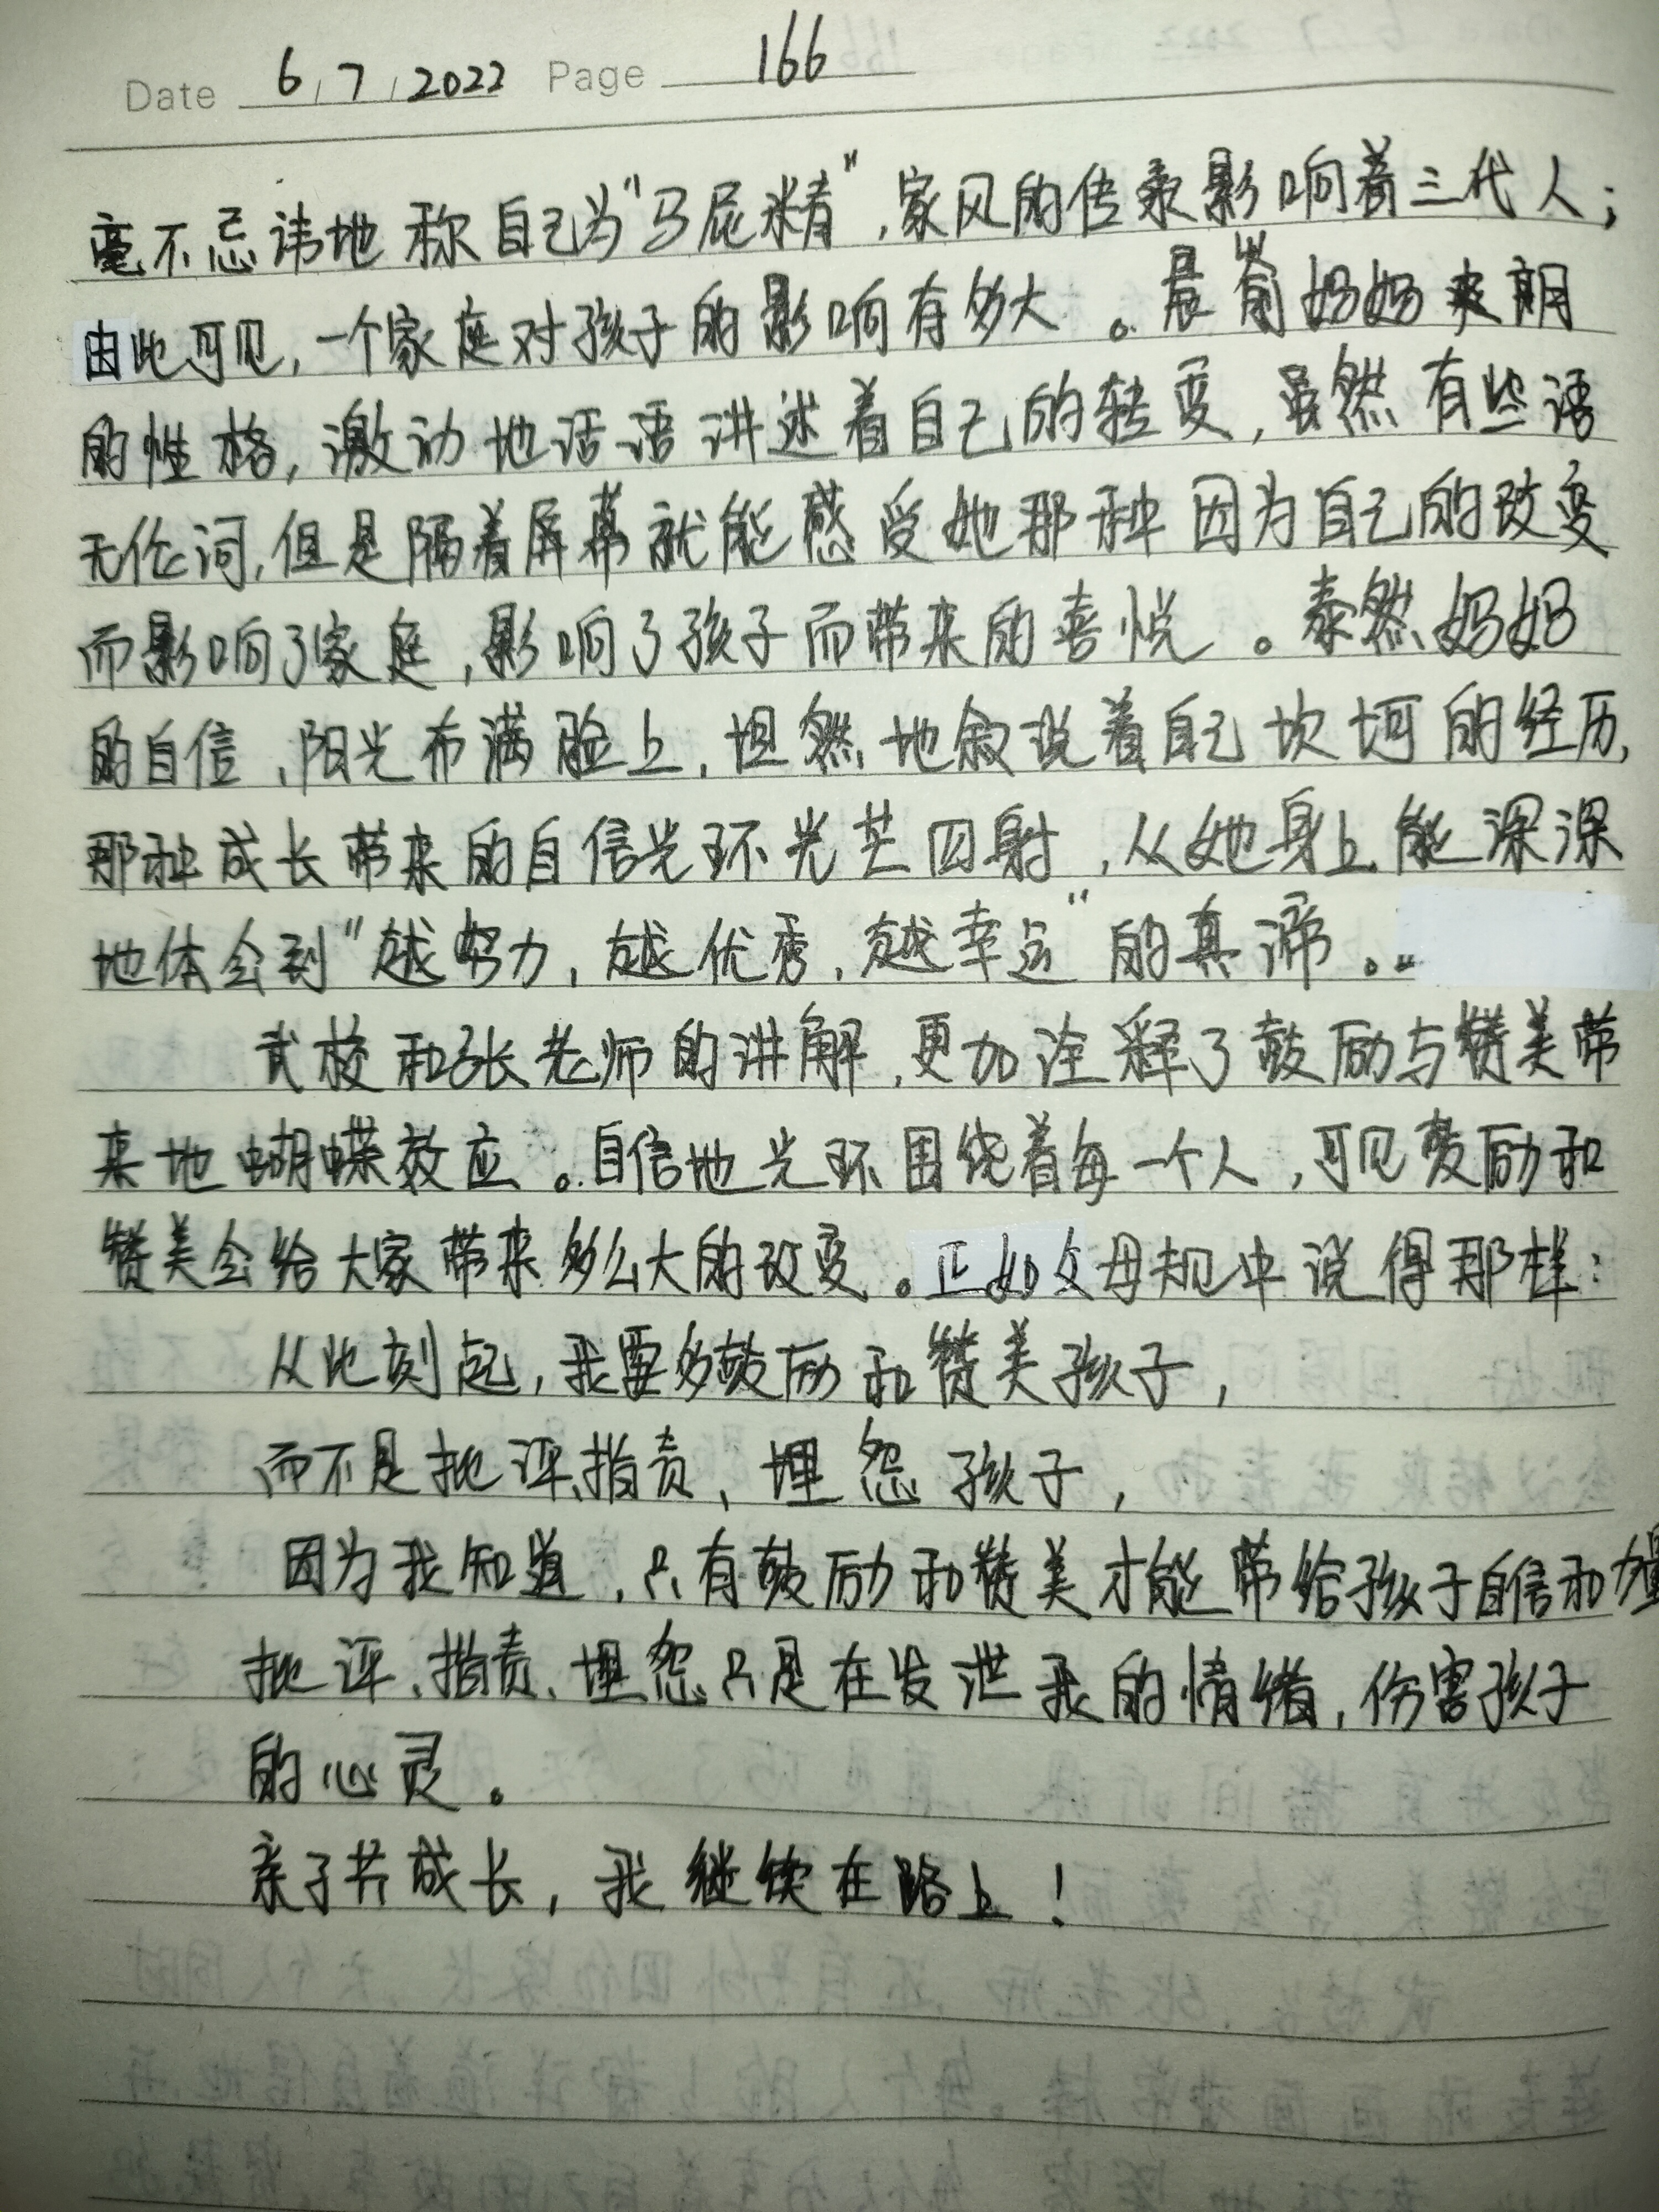 Date 6 / 7 / 2022 Page 166
毫不忌讳地称自己为"马屁精",家风的传承影响着三代人;
由此可见,一个家庭对孩子的影响有多大。晨曦妈妈爽朗
的性格,激动地话语讲述着自己的转变,虽然有些语
无伦词,但是隔着屏幕就能感受她那种因为自己的改变
而影响了家庭,影响了孩子而带来的喜悦。泰然妈妈
的自信、阳光布满脸上,坦然地叙说着自己坎坷的经历,
那种成长带来的自信光环光芒四射,从她身上能深深
地体会到"越努力,越优秀,越幸运"的真谛。
武校和张老师的讲解,更加诠释了鼓励与赞美带
来地蝴蝶效应。自信地光环围绕着每一个人,可见鼓励和
赞美会给大家带来多么大的改变。正如父母规中说得那样:
从此刻起,我要多鼓励和赞美孩子,
而不是批评、指责、埋怨孩子,
因为我知道,只有鼓励和赞美才能带给孩子自信和力量
批评、指责、埋怨只是在发泄我的情绪,伤害孩子
的心灵。
亲子共成长,我继续在路上!